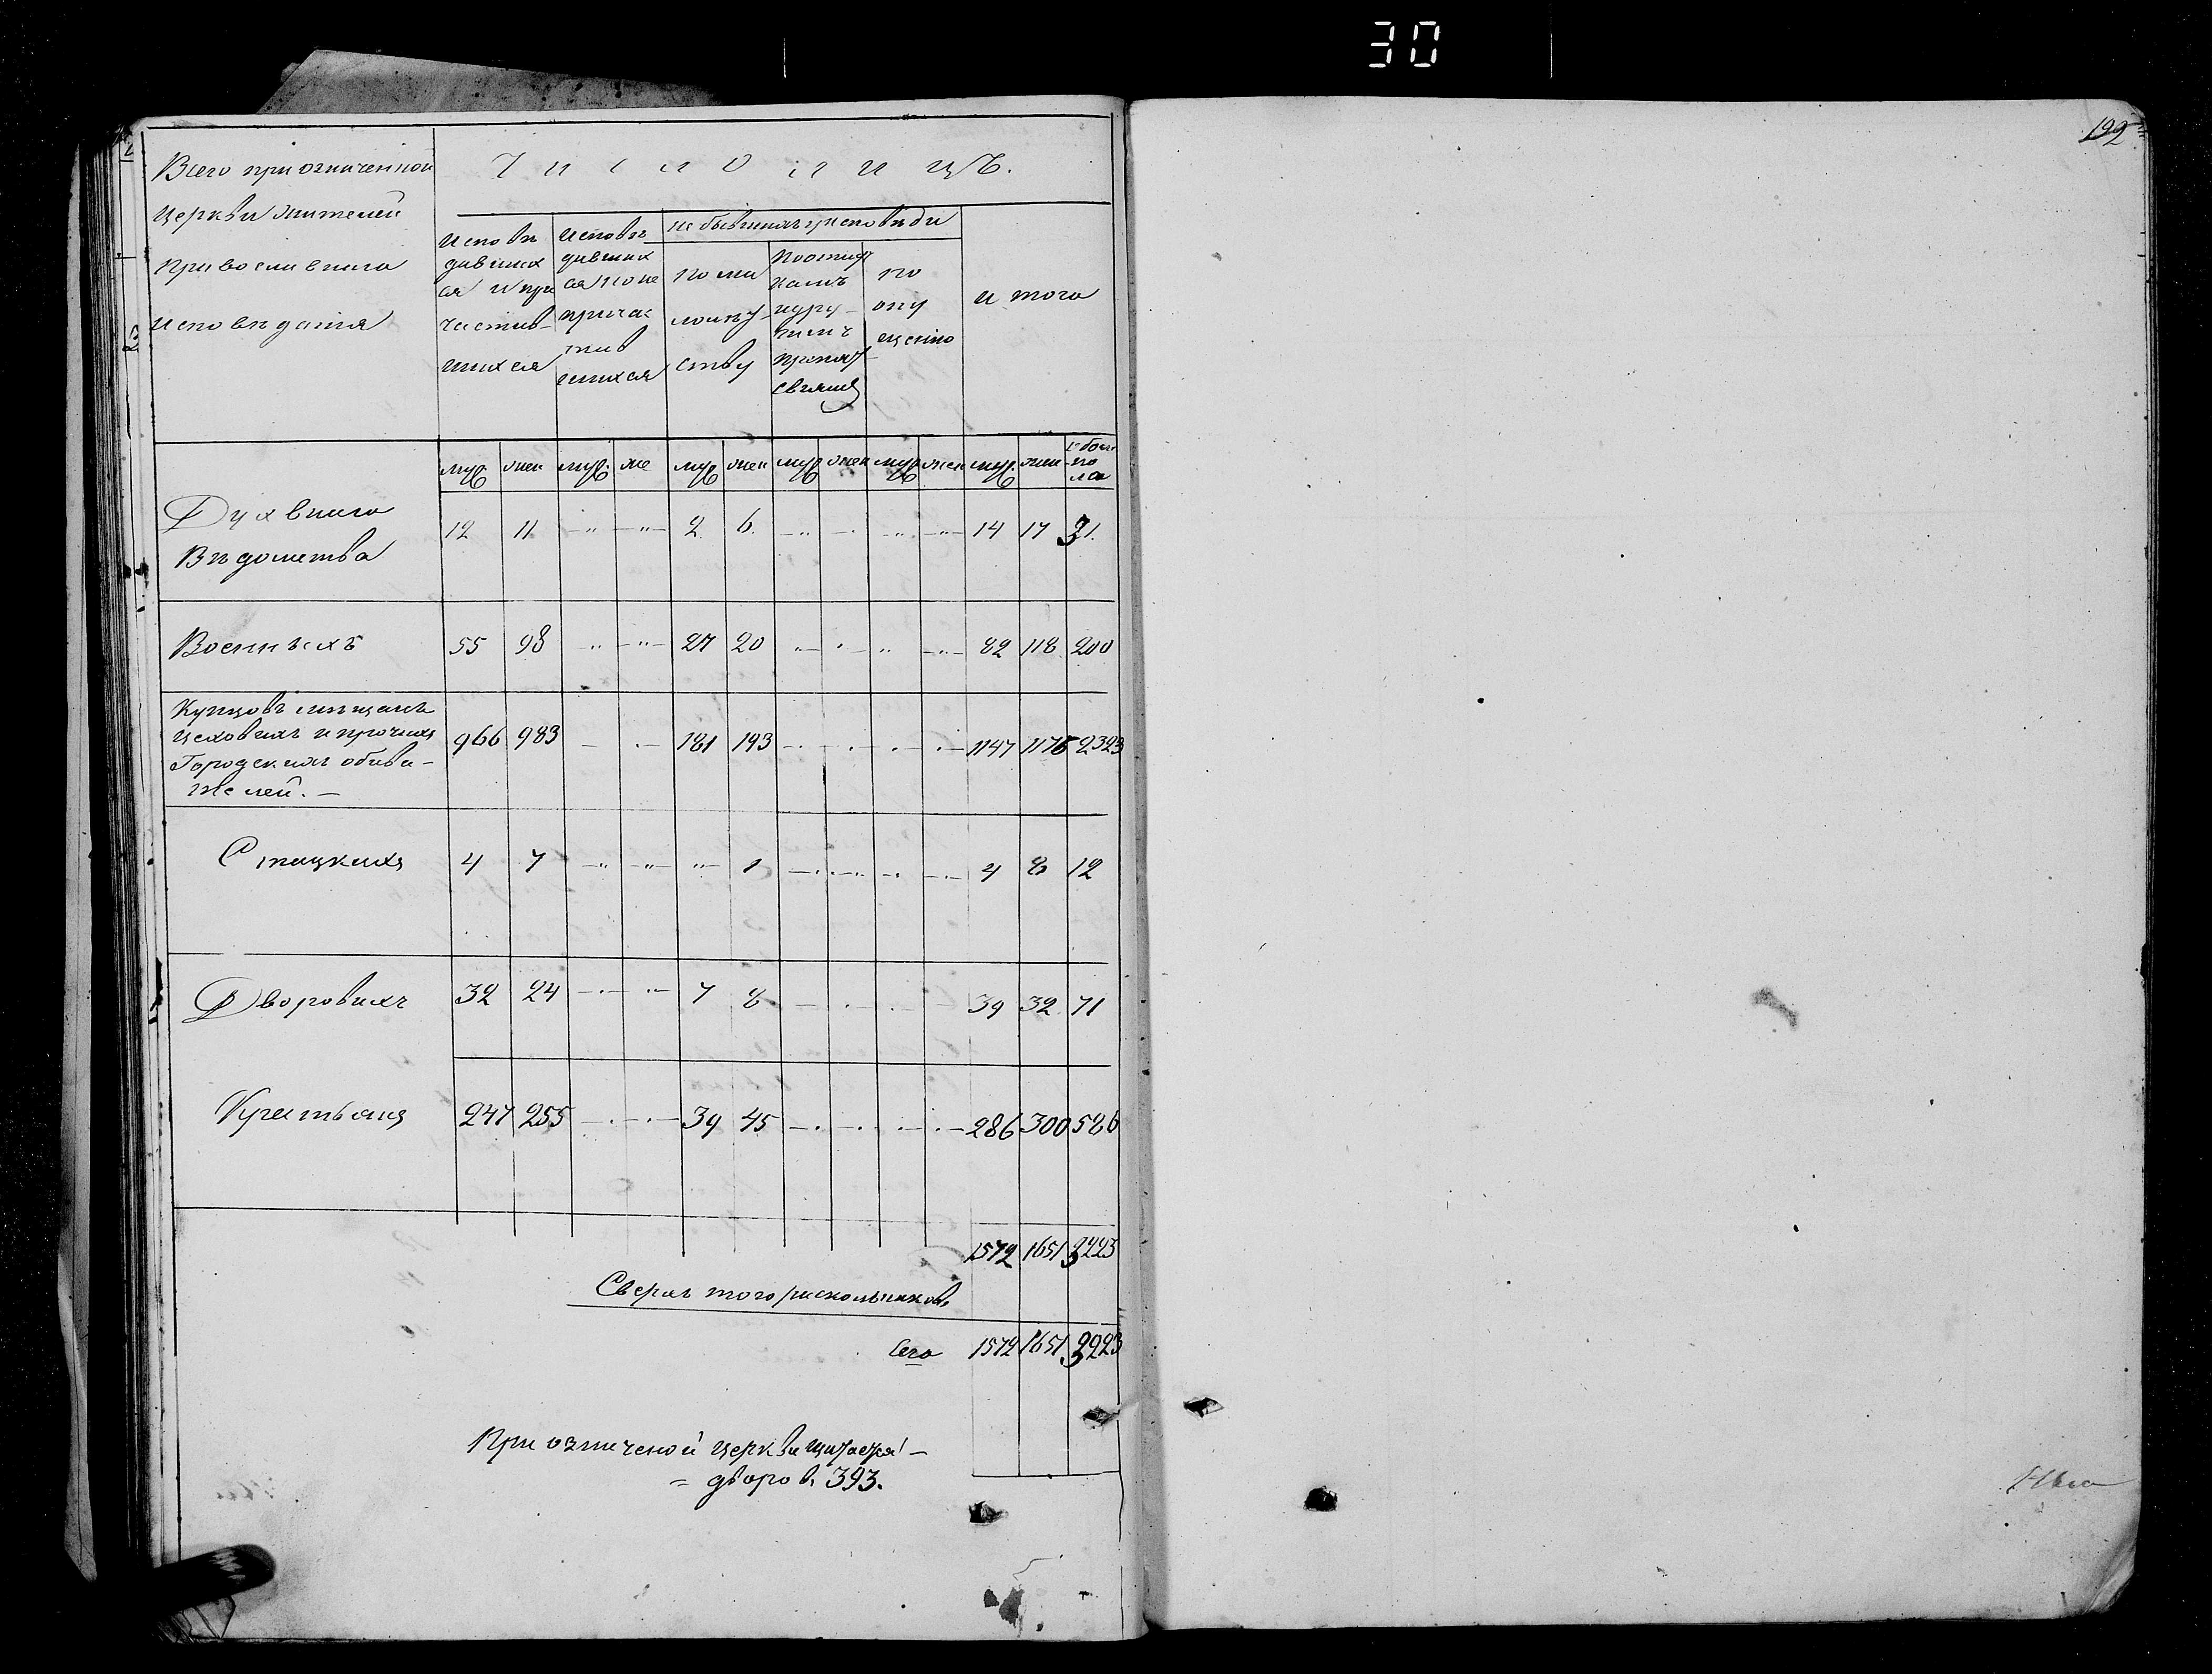 30
192
Всего при означенной
Церкви жителей
православнаго
исповѣданія
Число лицъ.
Исповѣ
давших
ся и при
частив-
шихся
Исповѣ
давших
ся но не
причас
тив
шихся
не бывшихъ у исповѣди
по мало
лѣтству
по
опу
щенію
и того
муж жен муж. же муж жен муж жен муж жен муж. жен обоего по ла
Духвнаго
Вѣдомства
12 11 -"- -"- 2. 6. -"- - - " - -"- 14 17 31.
Военныхъ 55 98 -"- -"- 27 20 " - " - " -"- 82 118 200
Купцовъ мѣщанъ
цеховыхъ и прочихъ
Городскихъ обыва-
телей. -
966 983 - . - 181 193 - . - . - . - 1147 1176 2323
Стацкихъ 4 7 -"- " - "- 1 - . - " - " - . - 4 8 12
Дворовыхъ 32 24 - . - " - 7 8 - . - . - 39 32 71
Крестьянъ 247 255 - . - . - 39 45 - . - . - . - 286 300 586
1572 1651 3223
Сверхъ того раскольниковъ
Всего 1572 1651 3223
При означеной церкви щитается -
= дворовъ 393.